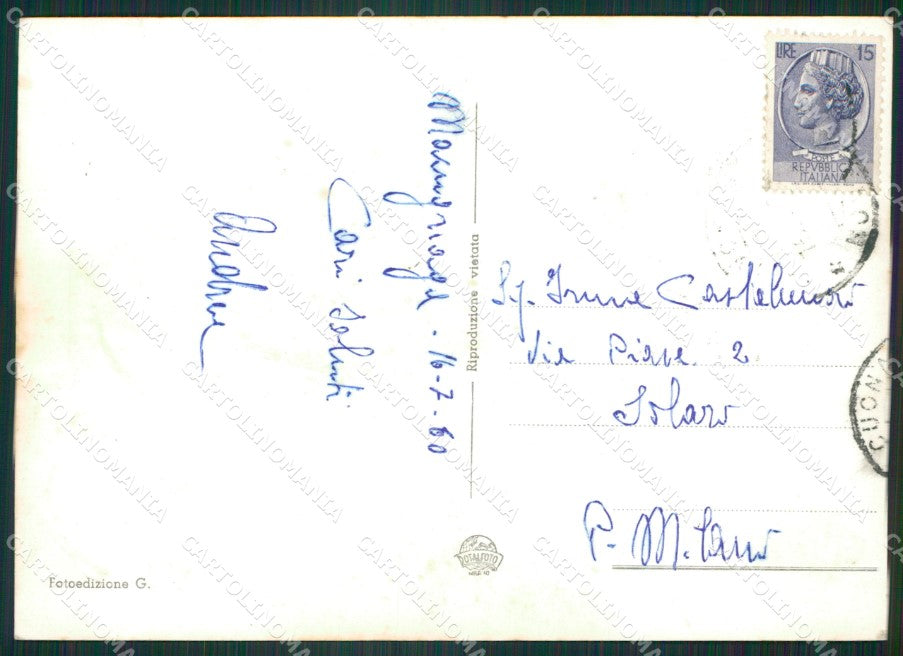 LIRE 15
POSTE
REPVBBLICA
ITALIANA
16-7-60
Cari saluti
Andrea
Riproduzione vietata
Sig. Irene
Via Piave 2
Solaro
P. Milano
TOTALFOTO
Fotoedizione G.
CARTOLINOMANIA